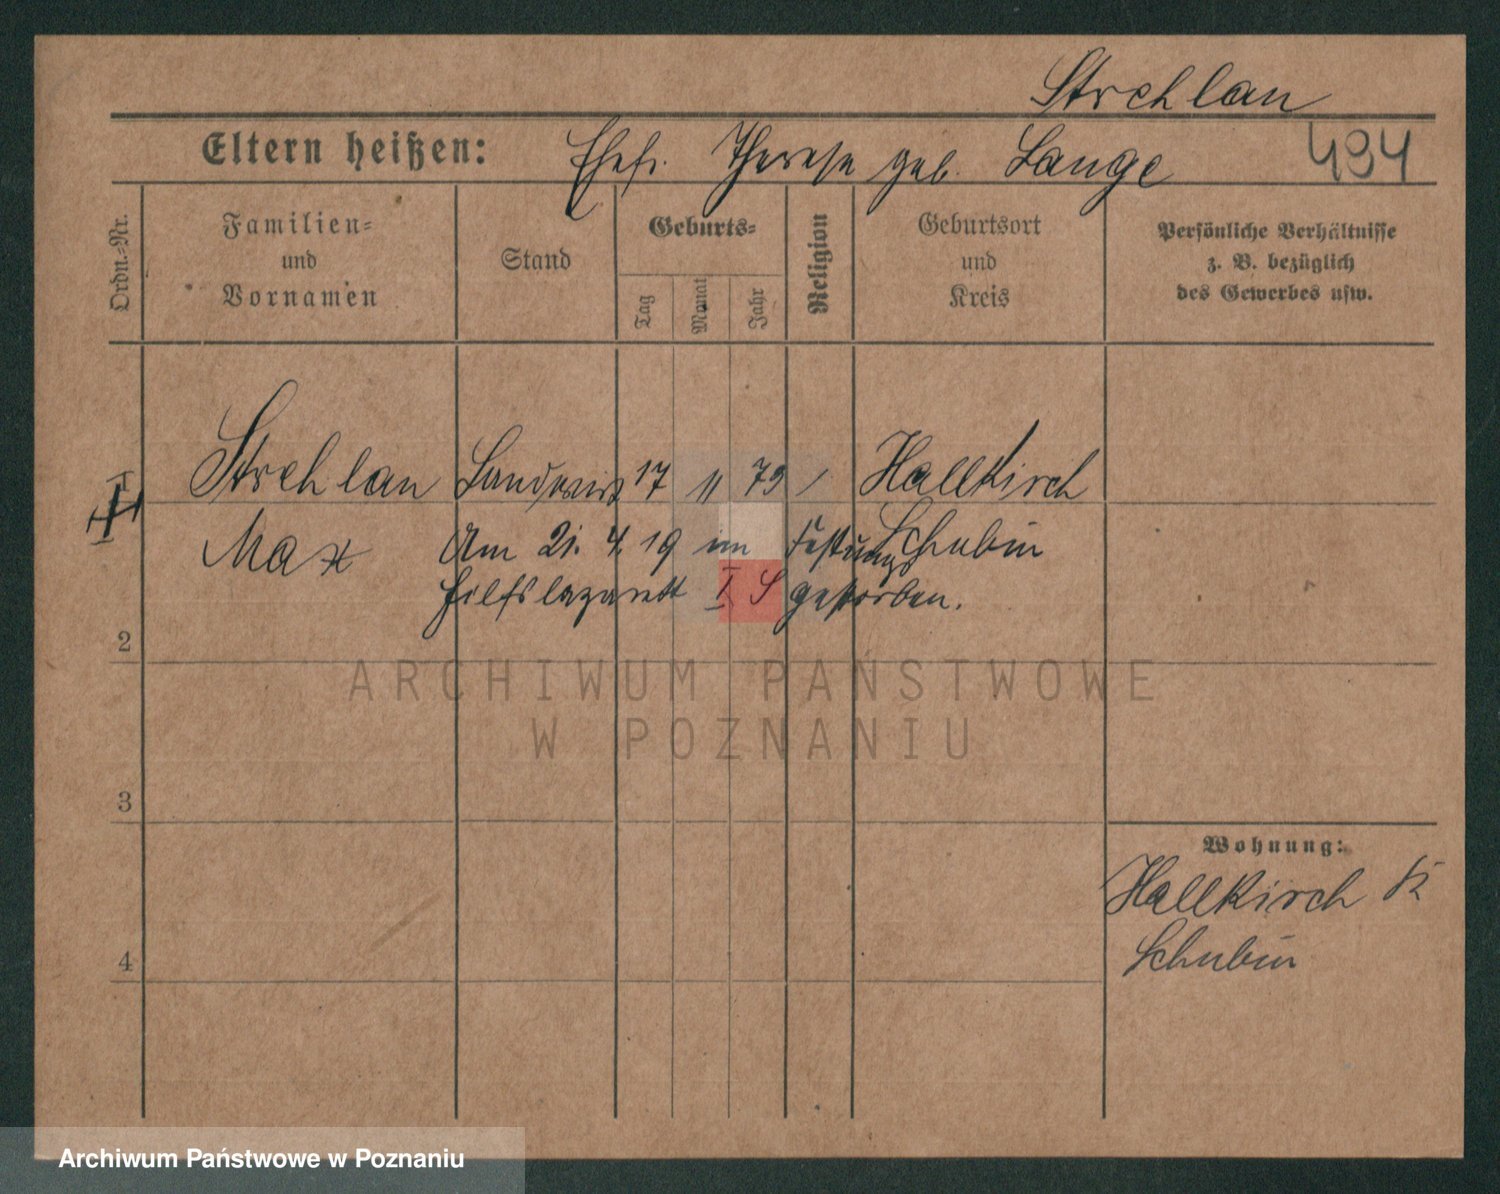 Strehlan
Eltern heißen: Ehefr. Therese geb. Lange 494
Ordn.-Nr.
Familien=
und
Vornamen
Stand
Geburts=
Tag
Monat
Jahr
Religion
Geburtsort
und
Kreis
Persönliche Verhältnisse
z. B. bezüglich
des Gewerbes usw.
Strehlan Landwirt 17 11 79 / Hallkirch
Max Schubin
Am 21. 4. 19 im Festungs
hilfslazarett I S gestorben.
2
ARCHIWUM PAŃSTWOWE
W POZNANIU
3
Wohnung:
Hallkirch K
Schubin
4
Archiwum Państwowe w Poznaniu